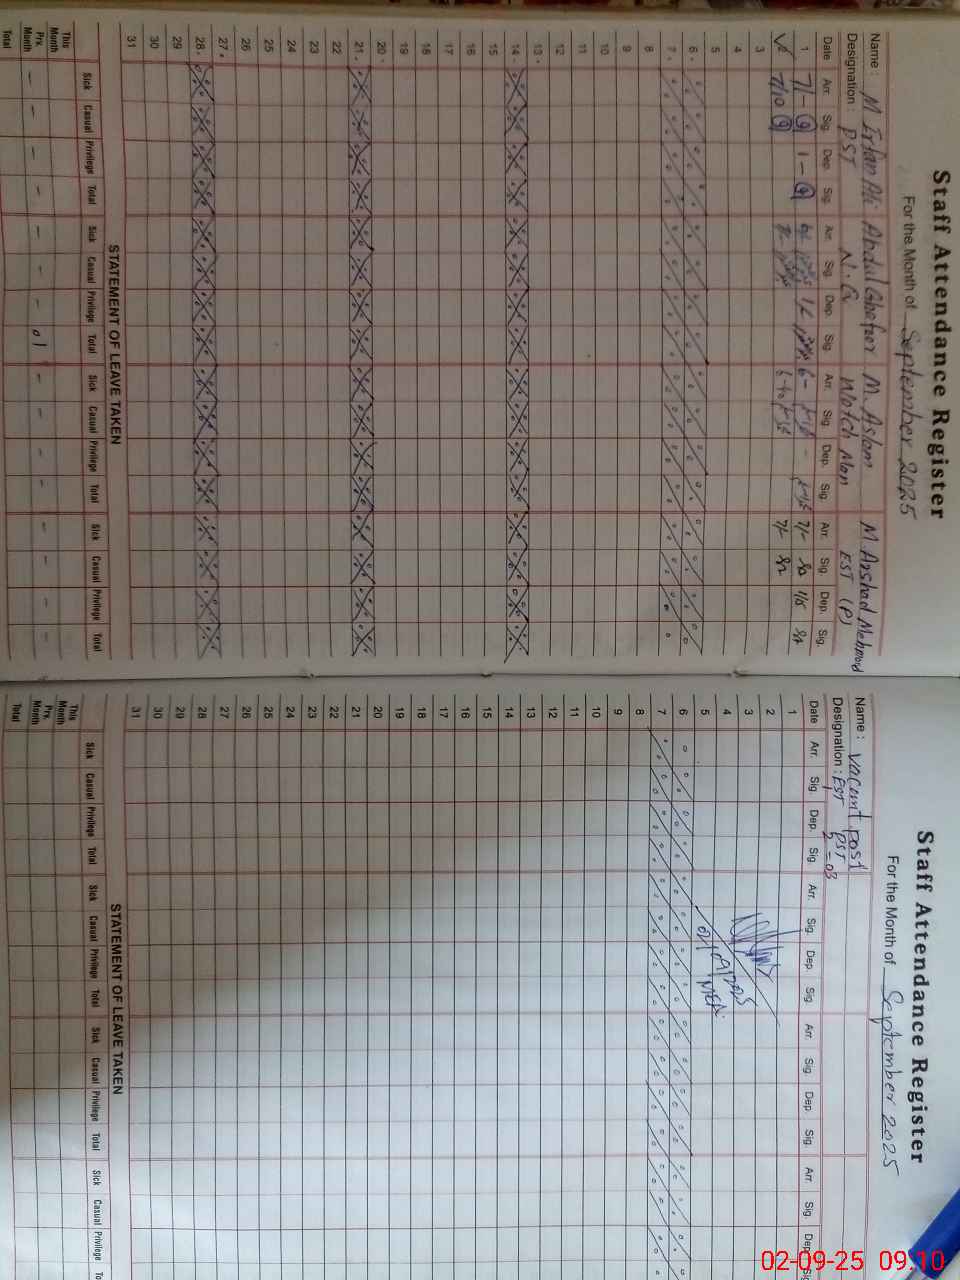 Staff Attendance Register
For the Month of September 2025
Name : M Irfan Ali Abdul Ghafoor M. Aslam M. Arshad Mehmood
Designation : PST N.Q Watch Man EST (P)
Date Arr. Sig. Dep. Sig. Arr. Sig. Dep. Sig. Arr. Sig. Dep. Sig. Arr. Sig. Dep. Sig.
1 7/- 1 - 6 - 7/-
2 7/10 7/-
3
4
5
6
7
8
9
10
11
12
13
14
15
16
17
18
19
20
21
22
23
24
25
26
27
28
29
30
31
STATEMENT OF LEAVE TAKEN
Sick Casual Privilege Total Sick Casual Privilege Total Sick Casual Privilege Total Sick Casual Privilege Total
This Month
Prv. Month - - - - - - - 01 - - - - - - - -
Total
Staff Attendance Register
For the Month of September 2025
Name : Vacant Post
Designation : EST PST = 03
Date Arr. Sig. Dep. Sig. Arr. Sig. Dep. Sig. Arr. Sig. Dep. Sig. Arr. Sig. Dep. Sig.
1
2
3
4
5
02/09/2025
MEA.
6
7
8
9
10
11
12
13
14
15
16
17
18
19
20
21
22
23
24
25
26
27
28
29
30
31
STATEMENT OF LEAVE TAKEN
Sick Casual Privilege Total Sick Casual Privilege Total Sick Casual Privilege Total Sick Casual Privilege To
This Month
Prv. Month
Total
02-09-25 09:10